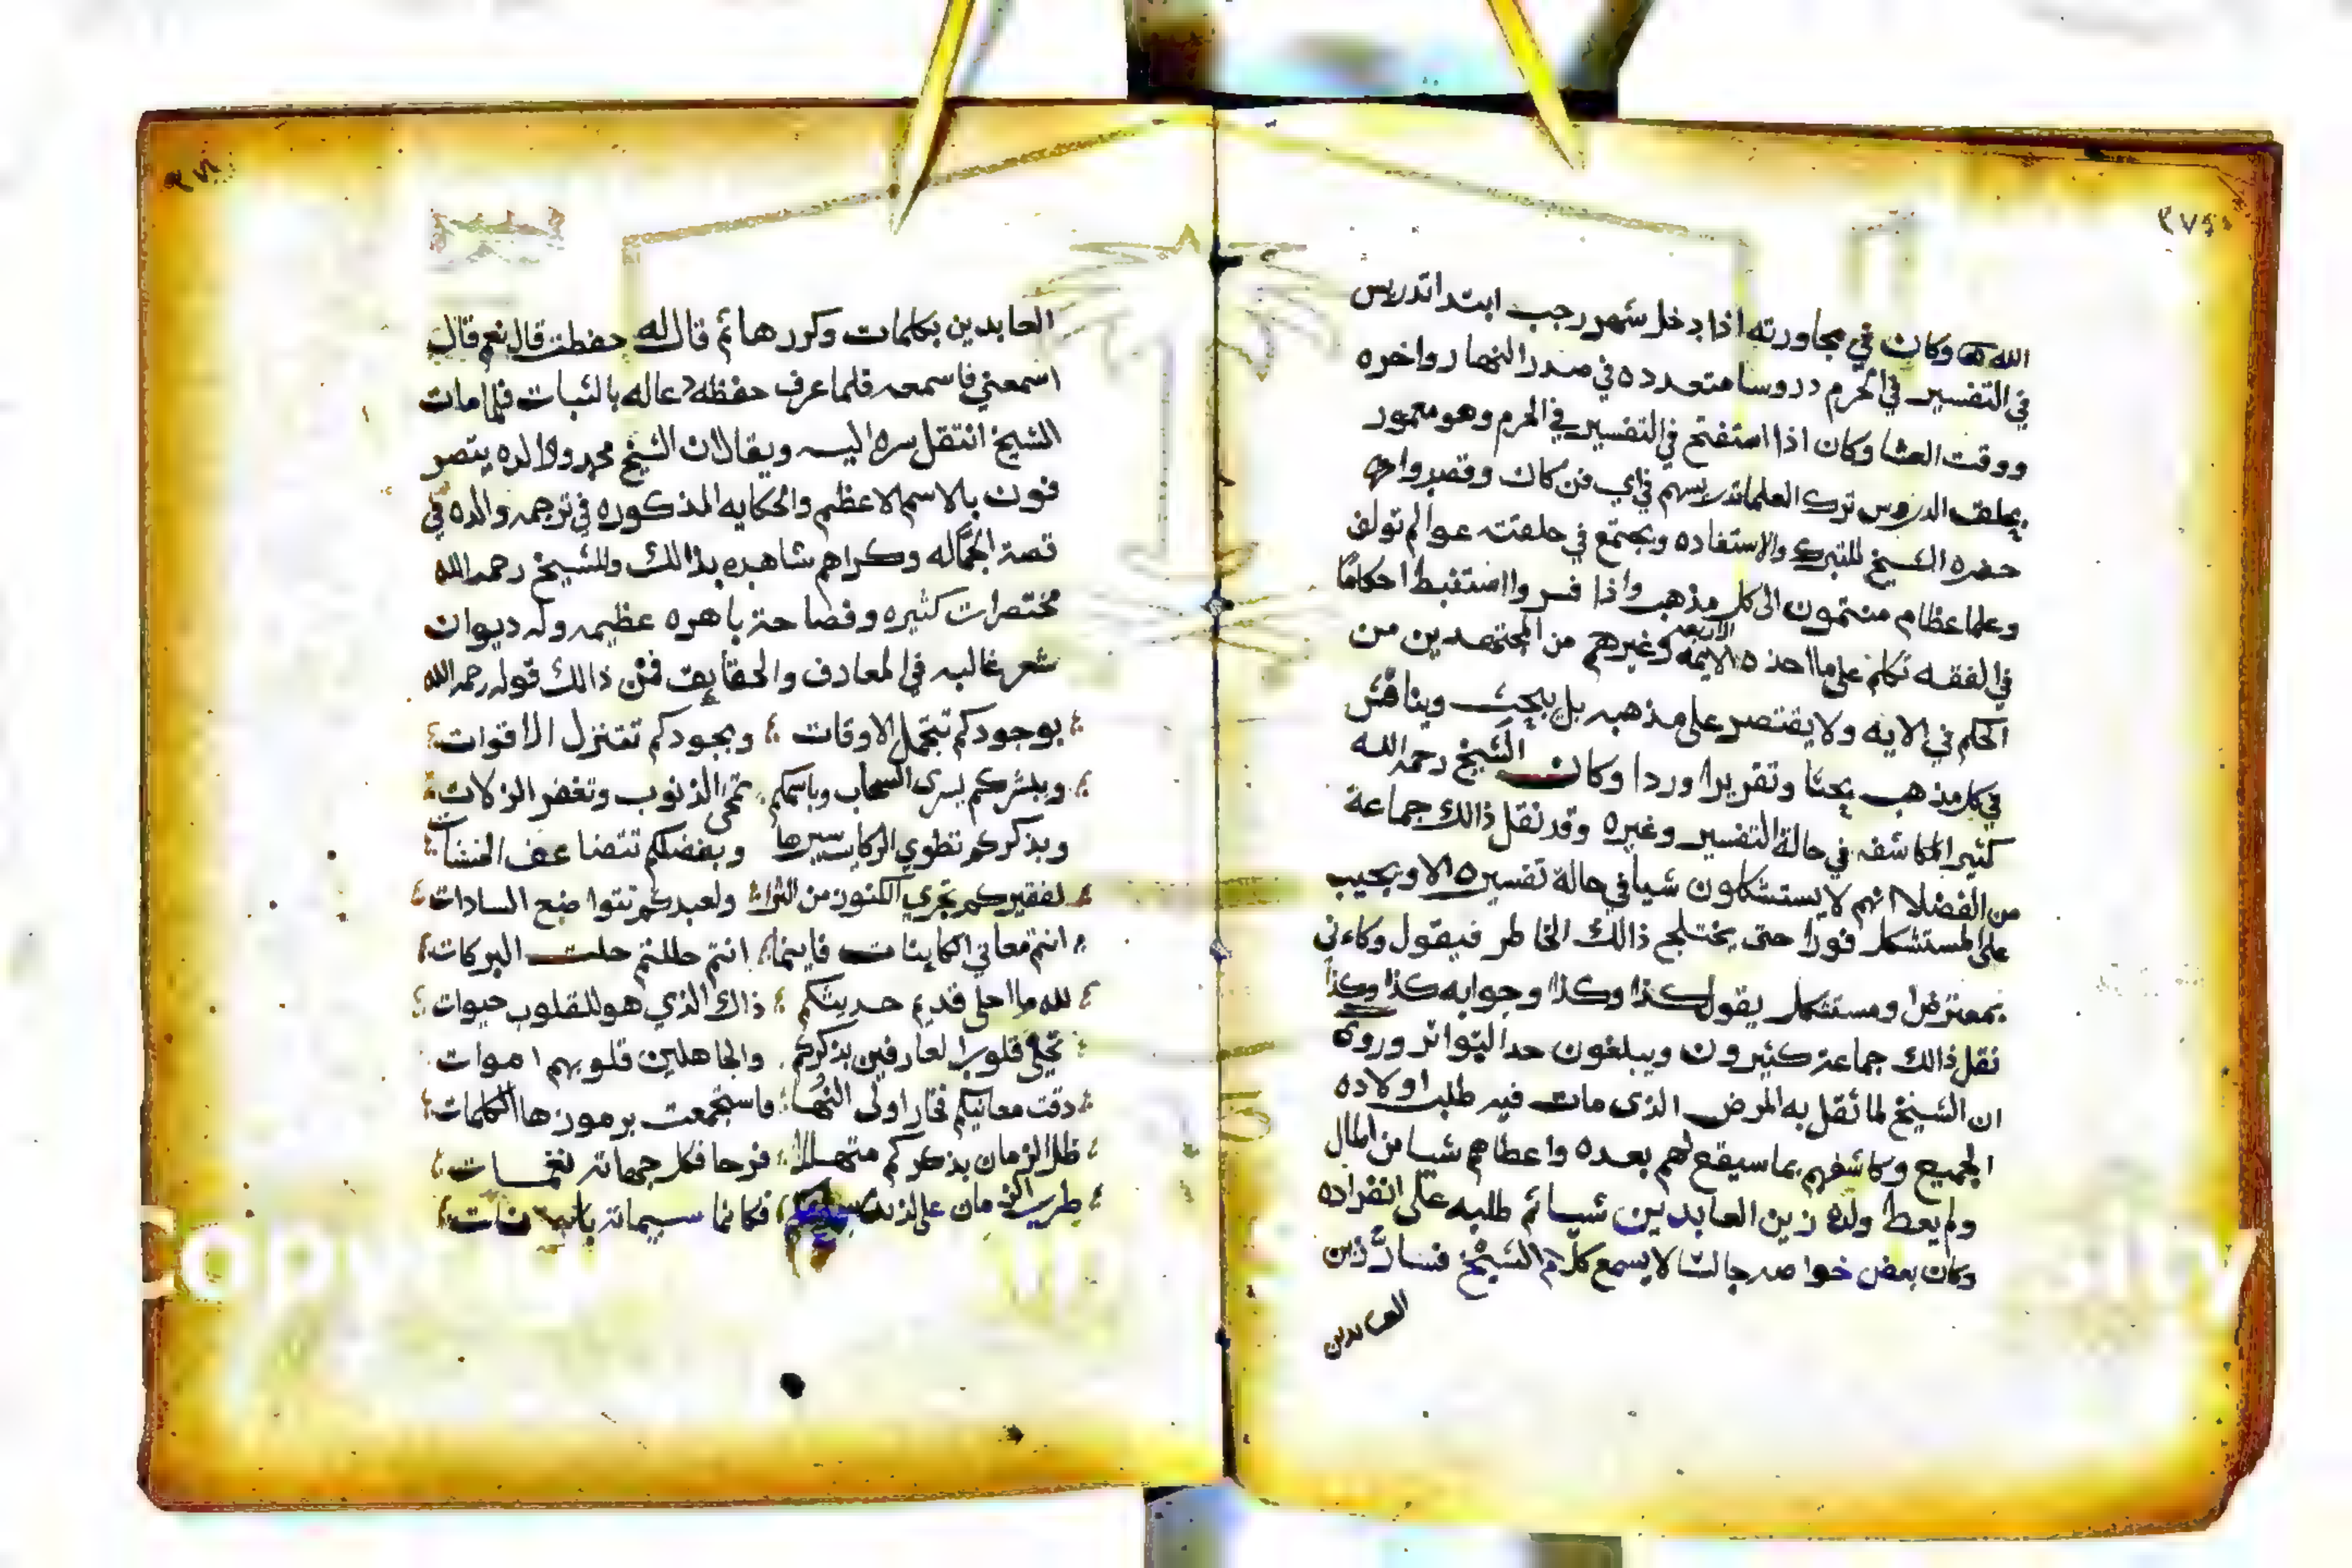 ٢٧٥
الله وكان في مجاورته اذا دخل شهر رجب ابتدا تدريس
في التفسير في الحرم دروسا متعدده في صدر النهار واخره
ووقت العشا وكان اذا استفتح في التفسير في الحرم وهو معمور
بحلق الدروس ترك العلما تدريسهم في اي فن كان وقصدوا
حضره الشيخ للتبرك والاستفاده ويجتمع في حلقته عوالم تولف
وعلما عظام منتمون الى كل مذهب واذا فسر واستنبط احكاما
في الفقه تكلم على ما اخذه الايمه الاربعه وغيرهم من المجتهدين من
الحكم في الايه ولا يقتصر على مذهبه بل يبحث ويناقش
في كل مذهب بحثا وتقريرا وردا وكان الشيخ رحمه الله
كثير المكاشفه في حالة التفسير وغيره وقد نقل ذالك جماعة
من الفضلا انهم لا يستشكلون شيا في حالة تفسيره الا ويجيب
على المستشكل فورا حتى يختلج ذالك الخاطر فيقول وكاءني
بمعترض ومستشكل يقول كذا وكذا وجوابه كذا وكذا
نقل ذالك جماعة كثيرون ويبلغون حد التواتر وروى
ان الشيخ لما ثقل به المرض الذى مات فيه طلب اولاده
الجميع وكاشفهم بما سيقع لهم بعده واعطاهم شيا من المال
ولم يعط ولده زين العابدين شيا ثم طلبه على انفراده
وكان بعض خواصه جالسا لا يسمع كلام الشيخ فسارّ زين
العابدين
العابدين بكلمات وكررها ثم قال له حفظت قال نعم قال
اسمعني فاسمعه فلما عرف حفظه دعا له بالثبات فلما مات
الشيخ انتقل سره اليه ويقال ان الشيخ محمد ووالده يتصر
فون بالاسم الاعظم والحكايه المذكوره في ترجمه والده في
قصة الجماله وكراهم شاهده بذالك وللشيخ رحمه الله
مختصرات كثيره وفصاحة باهره عظيمه وله ديوان
شعر غالبه في المعارف والحقايق فمن ذالك قوله رحمه الله
بوجودكم تتجمل الاوقات وبجودكم تتنزل الاقوات
وببشركم يسرى السحاب وباسمكم تمحى الذنوب وتغفر الزلات
وبذكركم تطوي الركايب سيرها وبفضلكم تتضاعف الحسنات
لفقيركم تجري الكنوز من الثرا ولعبدكم تتواضع السادات
انتم معاني الكاينات فاينما انتم حللتم حلت البركات
لله ما احلى قديم حديثكم ذاك الذي هو للقلوب حيوات
تحيى قلوب العارفين بذكركم والجاهلين قلوبهم اموات
دقت معانيكم فحار اولى النها واستجمعت برموزها الكلمات
ظل الزمان بذكركم متهللا فرحا فكل جهاته نغمات
طرب الزمان على لذيذ فكانما سيماته